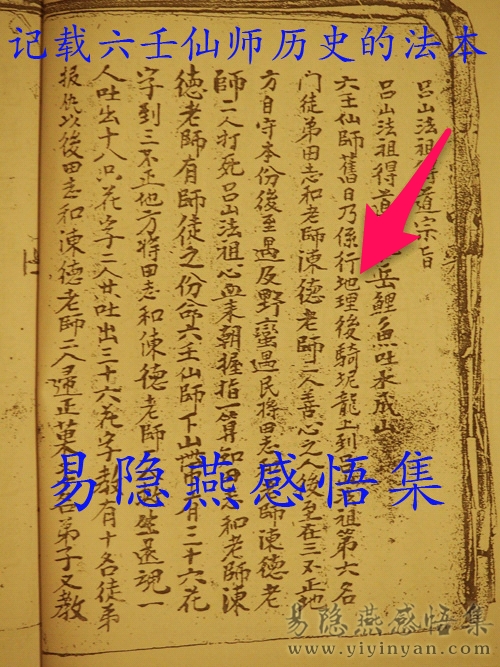 记载六壬仙师历史的法本
吕山法祖得道宗旨
吕山法祖得道 岳鯉魚吐水成山
六壬仙師舊日乃係行地理後騎坭龍上到 祖第六名
門徒弟田志和老師陳德老師二人善心之人後至在三不正地
方自守本份後至遇及野蠻遇民 田志 老師陳德老
師二人打死吕山法祖心血来朝握指一算知田志和老師陳
德老師有師徒之份命六壬仙師下山 有三十六花
字到三不正地方将田志和陳德老師 生还魂一
人吐出十八口花字二人共吐出三十六花字教有十名徒弟
报仇以後田志和陳德老師二人 正 名弟子又教
易隐燕感悟集
易隐燕感悟集
www.yiyinyan.com